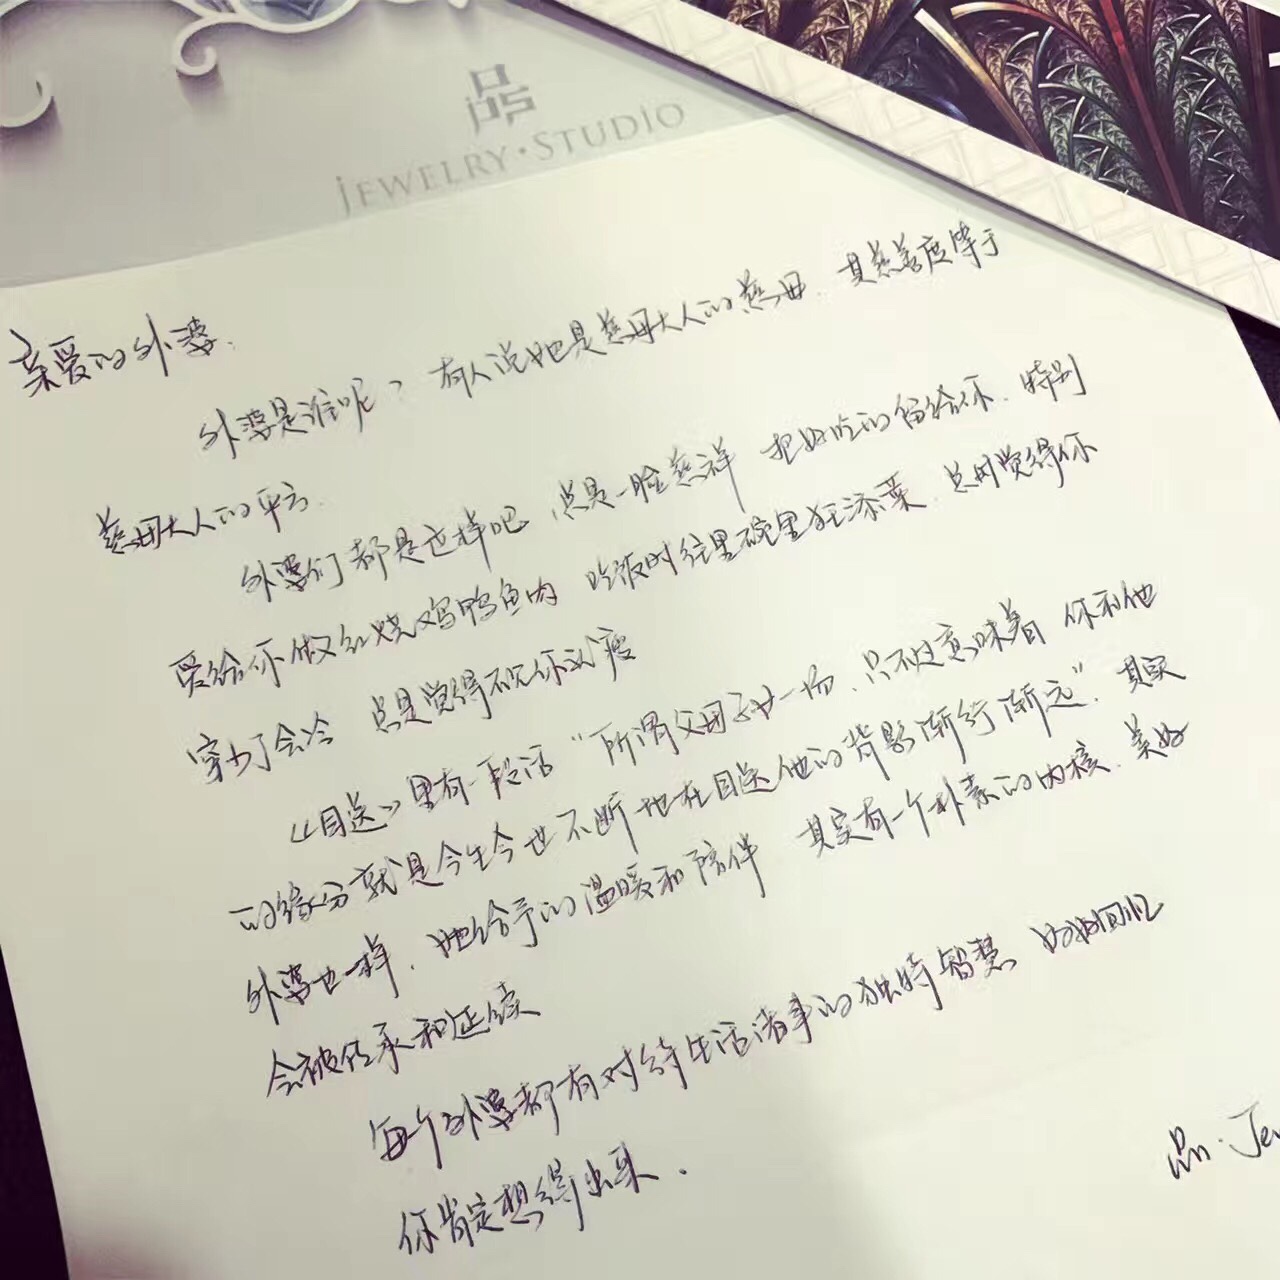 品
JEWELRY·STUDIO
亲爱的外婆.
外婆是谁呢? 有人说她是慈母大人的慈母. 其慈善度等于
慈母大人的平方.
外婆们都是这样吧, 总是一脸慈祥 把好吃的留给你. 特别
爱给你做红烧鸡鸭鱼肉 吃饭时往里碗里狂添菜. 总则觉得你
穿少了会冷 总是觉得
《目送》里有一段话“所谓父母子女一场, 只不过意味着 你和他
的缘分就是今生今世不断地在目送他的背影渐行渐远”. 其实
外婆也一样. 她给予的温暖和陪伴 其实有一个朴素的内核. 美好
会被传承和延续
每个外婆都有对待生活诸事的独特智慧 好好回忆
你肯定想得出来.
品·Je